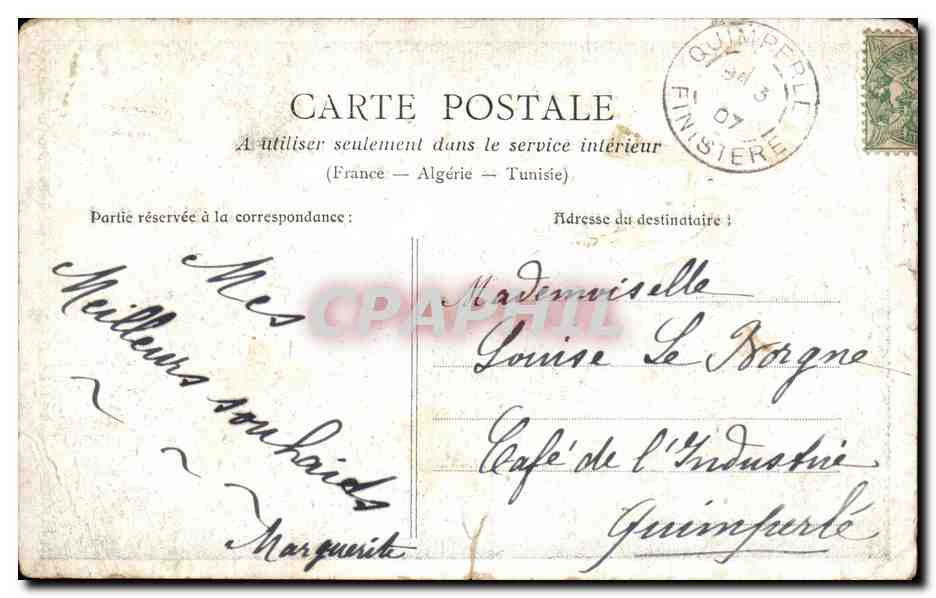 CARTE POSTALE
A utiliser seulement dans le service intérieur
(France — Algérie — Tunisie)
QUIMPERLE
3
07
FINISTERE
Partie réservée à la correspondance :
Adresse du destinataire :
Mes
Meilleurs souhaits
Marguerite
Mademoiselle
Louise Le Borgne
Café de l'Industrie
Quimperlé
CPAPHIL